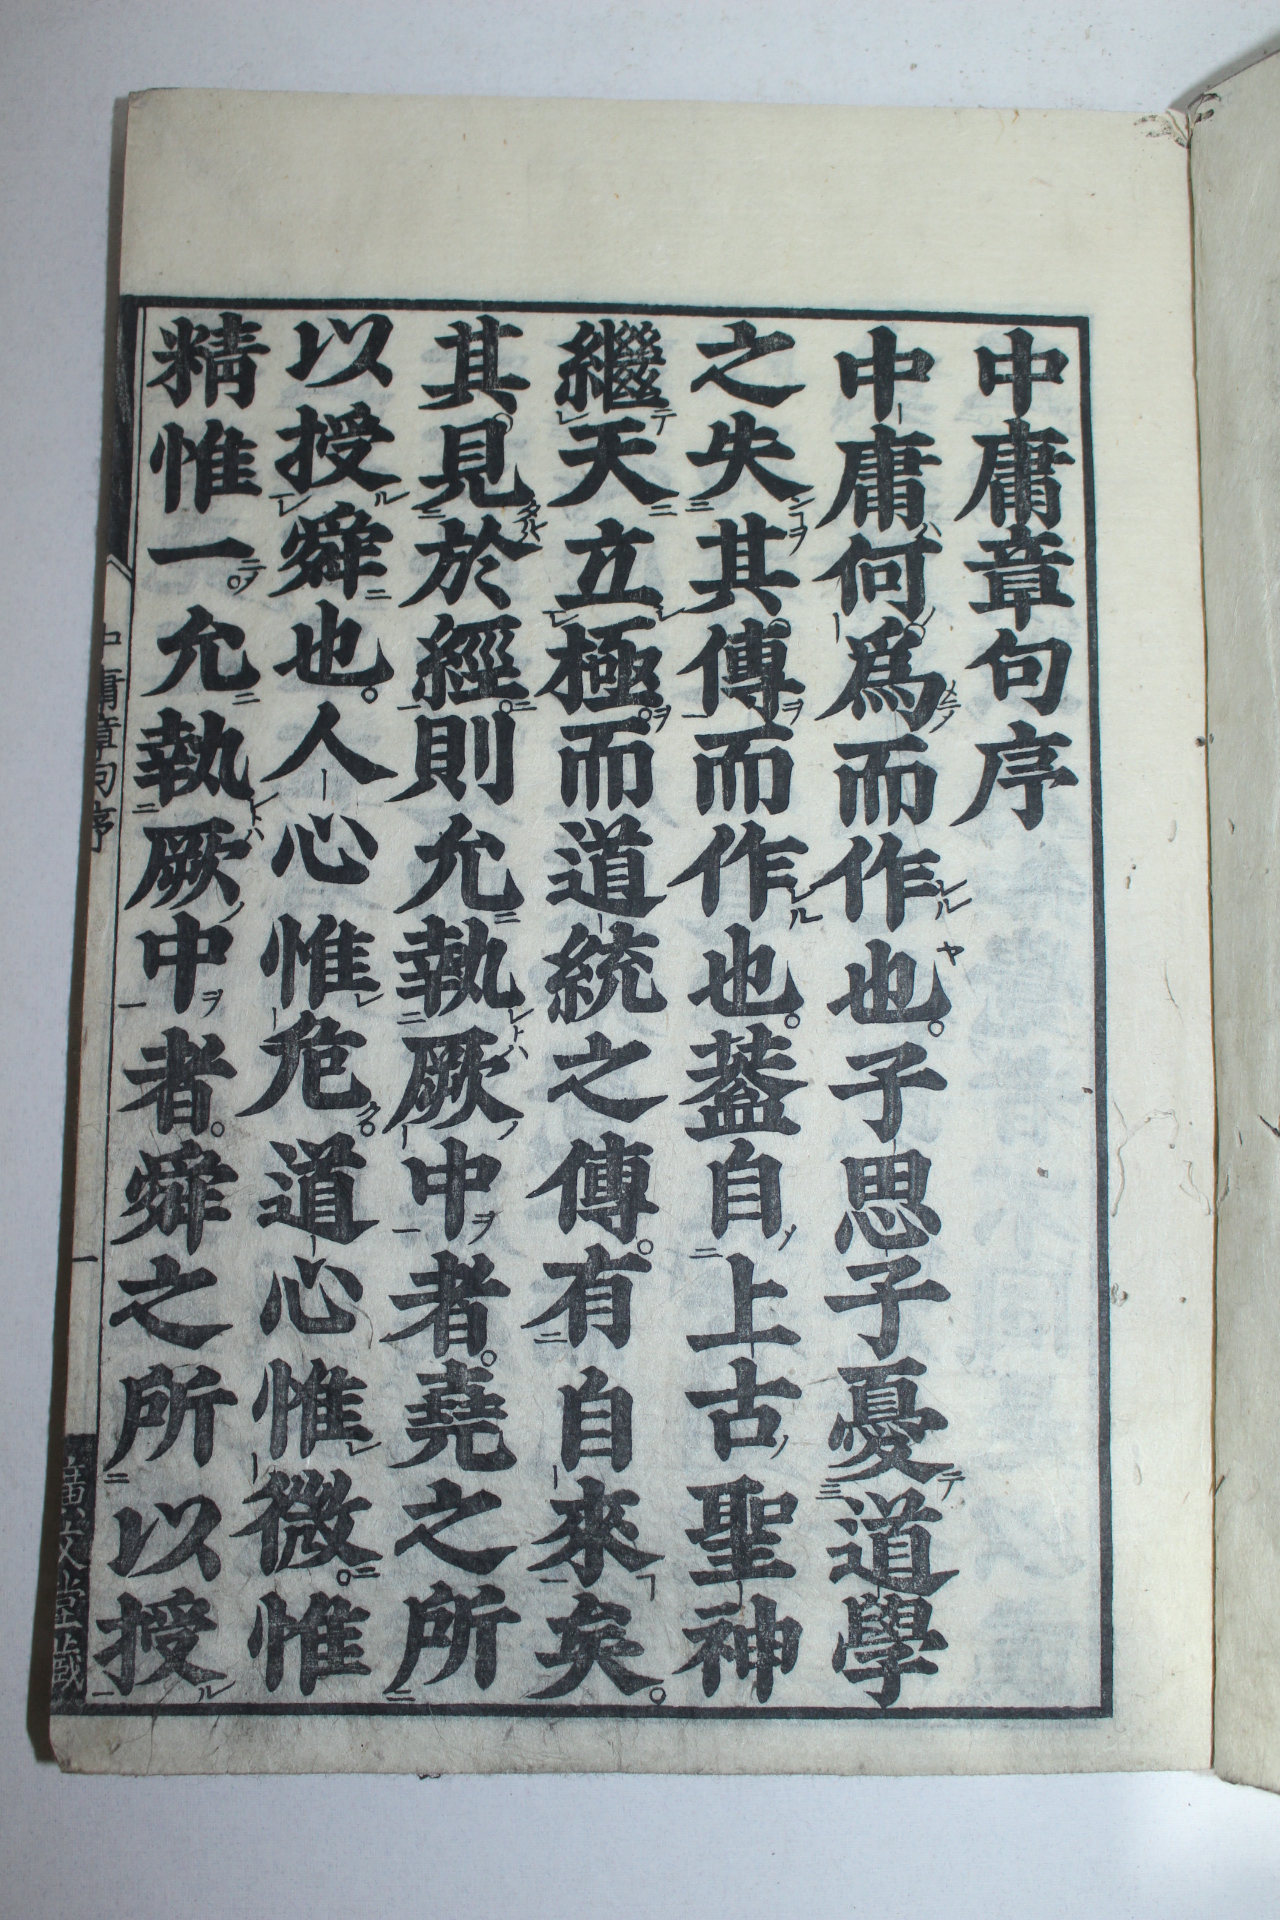 中庸章句序
中庸何爲而作也。子思子憂道學
之失其傳而作也。蓋自上古聖神
繼天立極。而道統之傳。有自來矣。
其見於經。則允執厥中者。堯之所
以授舜也。人心惟危。道心惟微。惟
精惟一。允執厥中者。舜之所以授
中庸章句序
一